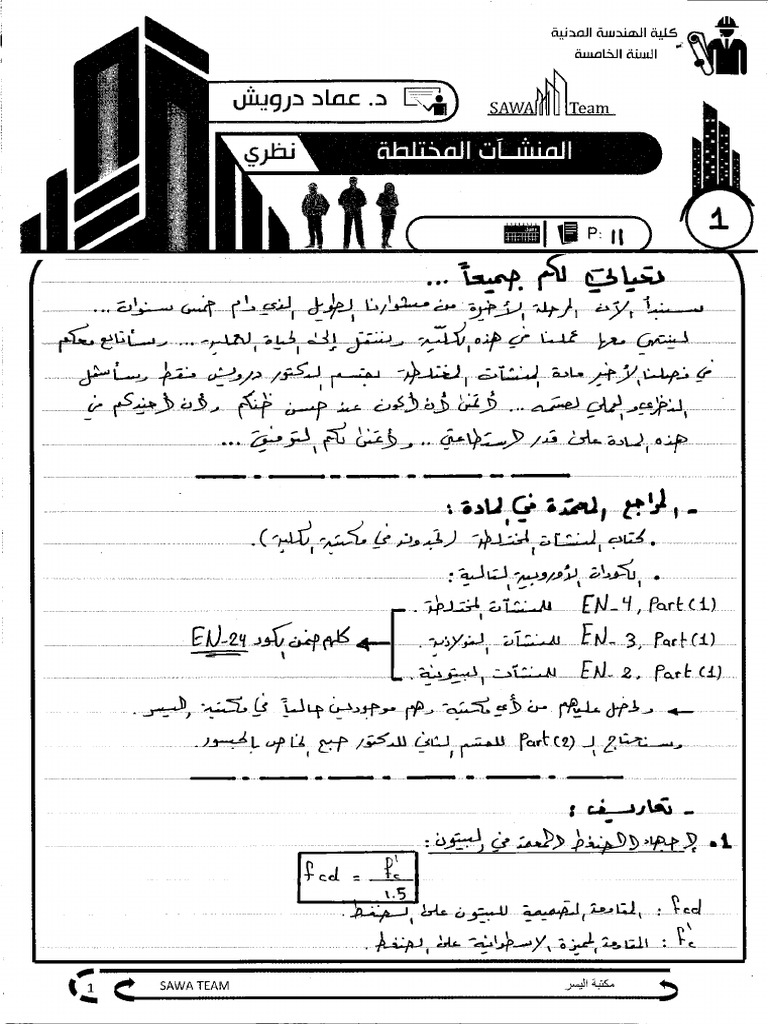 كلية الهندسة المدنية
السنة الخامسة
د. عماد درويش
SAWA Team
المنشــآت المختلطة
نظري
1
P: 11
تحياتي لكم جميعاً ...
سنبدأ الآن المرحلة الأخيرة من مشوارنا الطويل الذي دام خمس سنوات ...
لينتهي معها عملنا في هذه الكلية وننتقل إلى الحياة العملية ... وسأتابع معكم
في فصلنا الأخير مادة المنشآت المختلطة لقسم الدكتور درويش فقط وسأستمل
النظري والعملي لقسمه ... أتمنى أن أكون عند حسن ظنكم وأن أفيدكم في
هذه المادة على قدر استطاعتي .. وأتمنى لكم التوفيق ...
- المراجع المعتمدة في المادة :
• كتاب المنشآت المختلطة (تجدونه في مكتبة الكلية).
• الكودات الأوروبية التالية :
EN-4, Part(1) للمنشآت المختلطة.
EN-3, Part(1) للمنشآت الفولاذية.
كلهم ضمن الكود EN-24
EN-2, Part(1) للمنشآت البيتونية.
← ونحصل عليهم من أي مكتبة وهم موجودين حالياً في مكتبة اليسر.
وسنحتاج لـ Part(2) للقسم الثاني للدكتور صبح الخاص بالجسور.
- تعاريف :
1. إجهاد الضغط المعتمد في البيتون :
fcd = f'c / 1.5
fcd : المقاومة التصميمية للبيتون على الضغط.
f'c : المقاومة المميزة الاسطوانية على الضغط.
1
SAWA TEAM
مكتبة اليسر